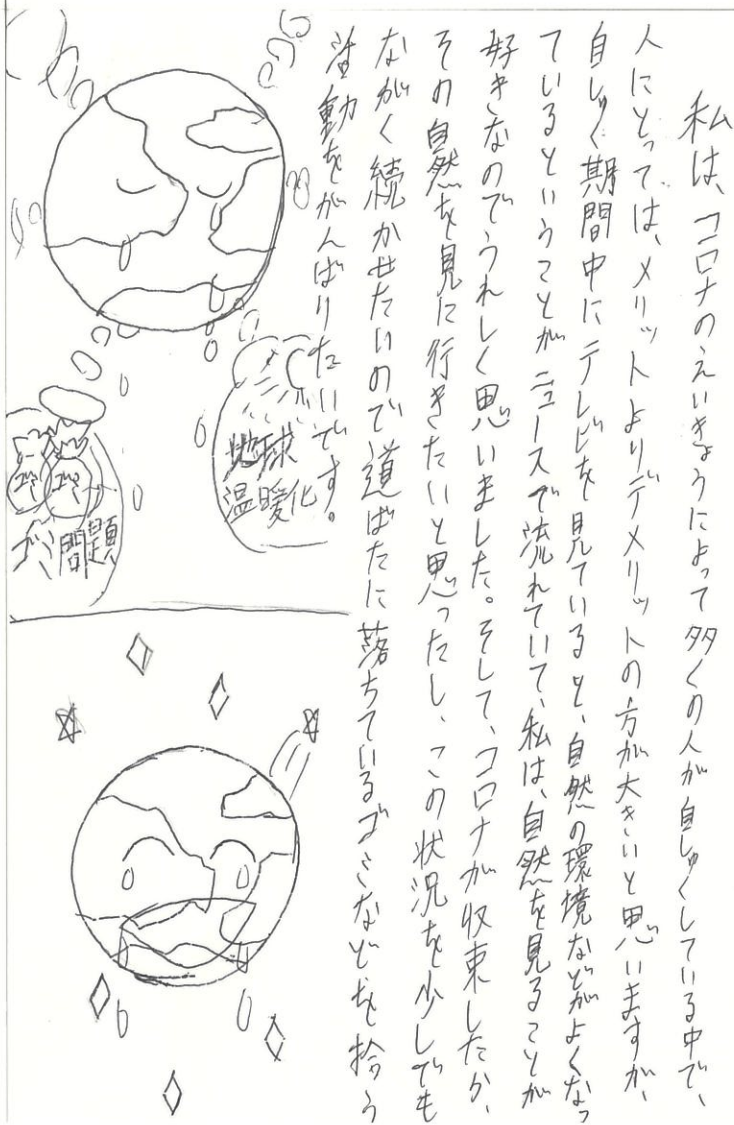 私は、コロナのえいきょうによって多くの人が自しゅくしている中で、
人にとっては、メリットよりデメリットの方が大きいと思いますが、
自しゅく期間中にテレビを見ていると、自然の環境などがよくなっ
ているということがニュースで流れていて、私は、自然を見ることが
好きなのでうれしく思いました。そして、コロナが収束したら、
その自然を見に行きたいと思ったし、この状況を少しでも
ながく続かせたいので道ばたに落ちているゴミなどを拾う
活動をがんばりたいです。
地球
温暖化
ゴミ
ゴミ
ゴミ問題